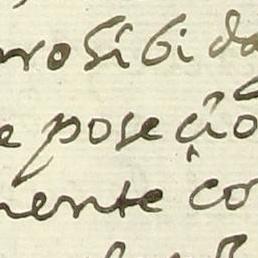 rosibida
e poseçio
nente co